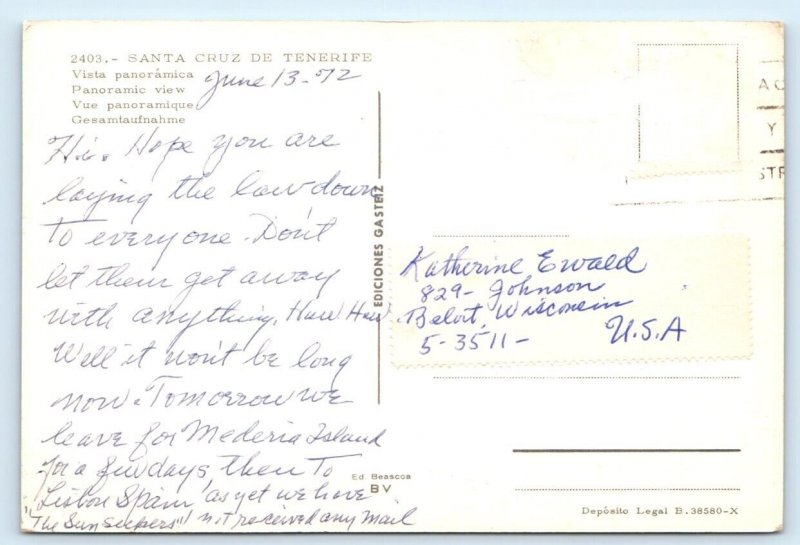 2403.- SANTA CRUZ DE TENERIFE
Vista panorámica
Panoramic view
Vue panoramique
Gesamtaufnahme
June 13-72
Hi. Hope you are
laying the law down
to everyone. Don't
let them get away
with anything. Haw Haw
Well it won't be long
now. Tomorrow we
leave for Mederia Island
for a few days, then to
Lisbon Spain, as yet we have
"The Sun Seekers" not received any mail
EDICIONES GASTEIZ
Ed. Beascoa
BV
AC
Y
STR
Katherine Ewald
829- Johnson
Beloit, Wisconsin
5-3511- U.S.A
Depósito Legal B.38580-X